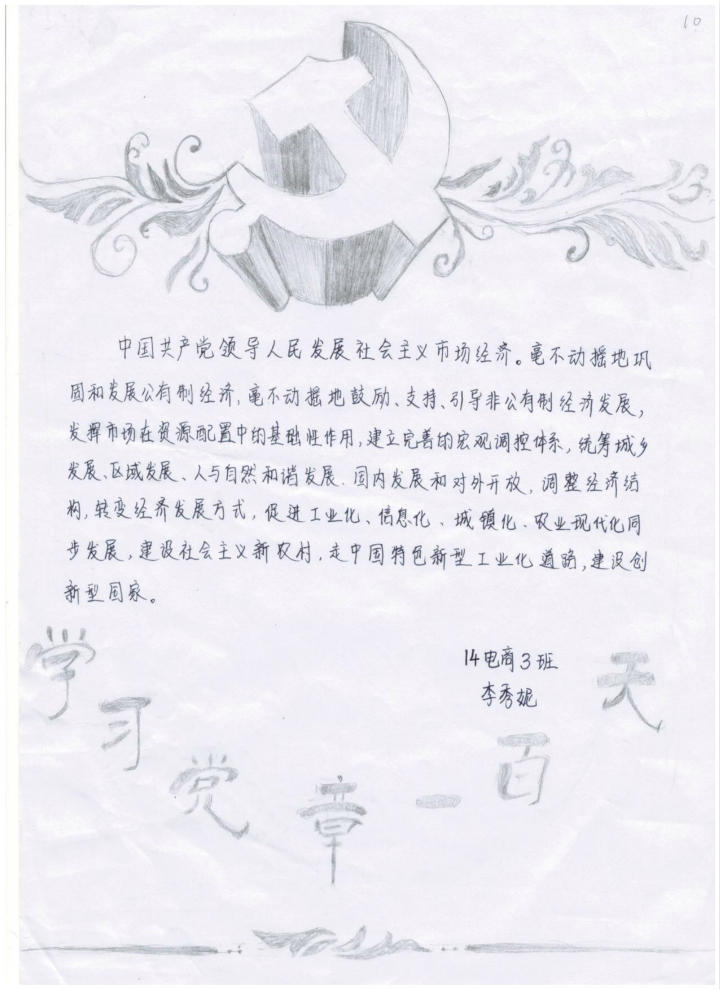 10
中国共产党领导人民发展社会主义市场经济。毫不动摇地巩
固和发展公有制经济,毫不动摇地鼓励、支持、引导非公有制经济发展,
发挥市场在资源配置中的基础性作用,建立完善的宏观调控体系,统筹城乡
发展、区域发展、人与自然和谐发展、国内发展和对外开放,调整经济结
构,转变经济发展方式,促进工业化、信息化、城镇化、农业现代化同
步发展,建设社会主义新农村,走中国特色新型工业化道路,建设创
新型国家。
14电商3班
李秀妮
学习党章一百天